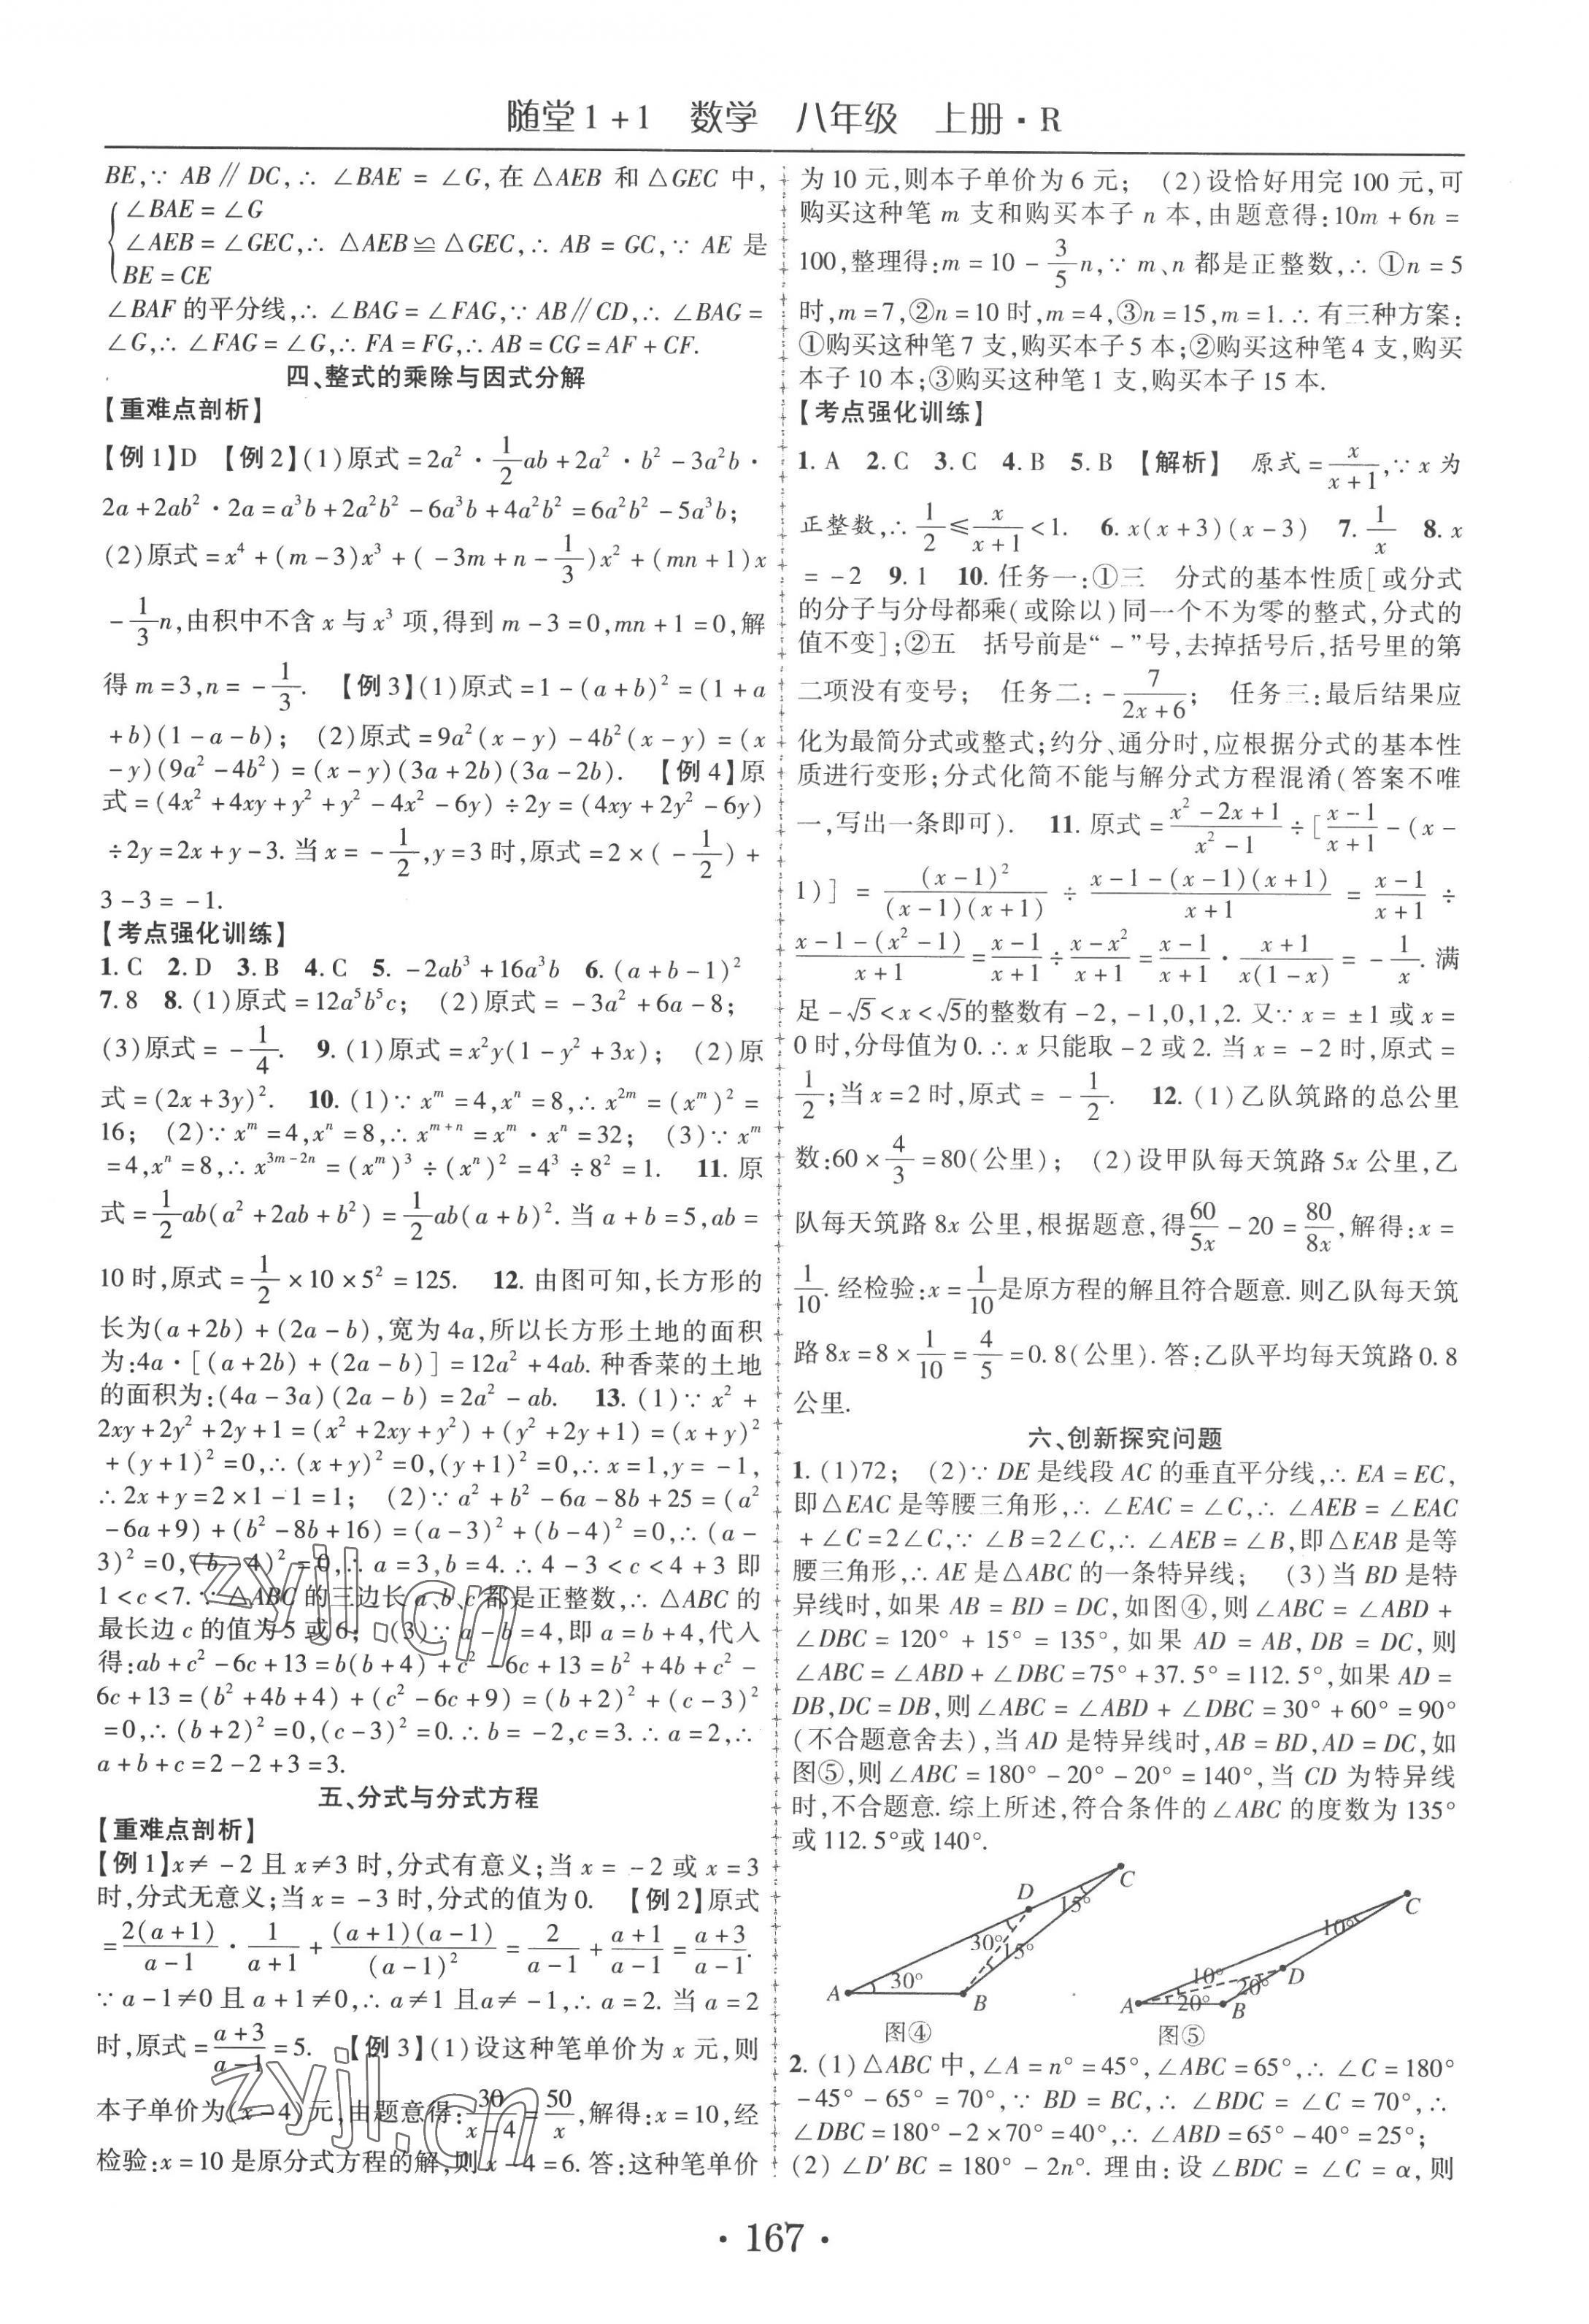 随堂1+1　数学　八年级　上册·R
BE,∵ AB∥DC,∴ ∠BAE = ∠G,在△AEB 和△GEC 中,
∠BAE = ∠G
∠AEB = ∠GEC,∴ △AEB≌△GEC,∴ AB = GC,∵ AE 是
BE = CE
∠BAF 的平分线,∴ ∠BAG = ∠FAG,∵ AB∥CD,∴ ∠BAG =
∠G,∴ ∠FAG = ∠G,∴ FA = FG,∴ AB = CG = AF + CF.
四、整式的乘除与因式分解
【重难点剖析】
【例1】D 【例2】(1)原式 = 2a²·1/2ab + 2a²·b² - 3a²b·
2a + 2ab²·2a = a³b + 2a²b² - 6a³b + 4a²b² = 6a²b² - 5a³b;
(2)原式 = x⁴ + (m-3)x³ + (-3m + n - 1/3)x² + (mn+1)x
- 1/3n,由积中不含 x 与 x³ 项,得到 m-3=0,mn+1=0,解
得 m=3,n= -1/3. 【例3】(1)原式 = 1-(a+b)² = (1+a
+b)(1-a-b); (2)原式 = 9a²(x-y) - 4b²(x-y) = (x
-y)(9a²-4b²) = (x-y)(3a+2b)(3a-2b). 【例4】原
式 = (4x²+4xy+y²+y²-4x²-6y)÷2y = (4xy+2y²-6y)
÷2y=2x+y-3. 当 x= -1/2,y=3 时,原式 = 2×(-1/2)+
3-3= -1.
【考点强化训练】
1. C 2. D 3. B 4. C 5. -2ab³+16a³b 6. (a+b-1)²
7. 8 8. (1)原式 = 12a⁵b⁵c; (2)原式 = -3a²+6a-8;
(3)原式 = -1/4. 9. (1)原式 = x²y(1-y²+3x); (2)原
式 = (2x+3y)². 10. (1)∵ xᵐ=4,xⁿ=8,∴ x²ᵐ = (xᵐ)² =
16; (2)∵ xᵐ=4,xⁿ=8,∴ xᵐ⁺ⁿ = xᵐ·xⁿ=32; (3)∵ xᵐ
=4,xⁿ=8,∴ x³ᵐ⁻²ⁿ = (xᵐ)³÷(xⁿ)² = 4³÷8²=1. 11. 原
式 = 1/2ab(a²+2ab+b²) = 1/2ab(a+b)². 当 a+b=5,ab=
10 时,原式 = 1/2×10×5²=125. 12. 由图可知,长方形的
长为(a+2b)+(2a-b),宽为 4a,所以长方形土地的面积
为:4a·[(a+2b)+(2a-b)] = 12a²+4ab. 种香菜的土地
的面积为:(4a-3a)(2a-b) = 2a²-ab. 13. (1)∵ x²+
2xy+2y²+2y+1=(x²+2xy+y²)+(y²+2y+1)=(x+y)²
+(y+1)²=0,∴ (x+y)²=0,(y+1)²=0,∴ x=1,y=-1,
∴ 2x+y=2×1-1=1; (2)∵ a²+b²-6a-8b+25=(a²
-6a+9)+(b²-8b+16)=(a-3)²+(b-4)²=0,∴ (a-
3)²=0,(b-4)²=0,∴ a=3,b=4. ∴ 4-3<c<4+3 即
1<c<7. ∵ △ABC 的三边长 a、b、c 都是正整数,∴ △ABC 的
最长边 c 的值为 5 或 6; (3)∵ a-b=4,即 a=b+4,代入
得:ab+c²-6c+13=b(b+4)+c²-6c+13=b²+4b+c²-
6c+13=(b²+4b+4)+(c²-6c+9)=(b+2)²+(c-3)²
=0,∴ (b+2)²=0,(c-3)²=0. ∴ b=-2,c=3. ∴ a=2,∴
a+b+c=2-2+3=3.
五、分式与分式方程
【重难点剖析】
【例1】x≠-2 且 x≠3 时,分式有意义;当 x=-2 或 x=3
时,分式无意义;当 x=-3 时,分式的值为 0. 【例2】原式
= 2(a+1)/(a-1) · 1/(a+1) + (a+1)(a-1)/(a-1)² = 2/(a-1) + (a+1)/(a-1) = (a+3)/(a-1).
∵ a-1≠0 且 a+1≠0,∴ a≠1 且 a≠-1,∴ a=2. 当 a=2
时,原式 = (a+3)/(a-1) = 5. 【例3】(1)设这种笔单价为 x 元,则
本子单价为(x-4)元,由题意得:30/(x-4) = 50/x,解得:x=10,经
检验:x=10 是原分式方程的解,则 x-4=6. 答:这种笔单价
为 10 元,则本子单价为 6 元; (2)设恰好用完 100 元,可
购买这种笔 m 支和购买本子 n 本,由题意得:10m+6n=
100,整理得:m=10-3/5n,∵ m、n 都是正整数,∴ ①n=5
时,m=7,②n=10 时,m=4,③n=15,m=1. ∴ 有三种方案:
①购买这种笔 7 支,购买本子 5 本;②购买这种笔 4 支,购买
本子 10 本;③购买这种笔 1 支,购买本子 15 本.
【考点强化训练】
1. A 2. C 3. C 4. B 5. B 【解析】 原式 = x/(x+1),∵ x 为
正整数,∴ 1/2 ≤ x/(x+1) < 1. 6. x(x+3)(x-3) 7. 1/x 8. x
= -2 9. 1 10. 任务一:①三 分式的基本性质[或分式
的分子与分母都乘(或除以)同一个不为零的整式,分式的
值不变];②五 括号前是“-”号,去掉括号后,括号里的第
二项没有变号; 任务二: -7/(2x+6); 任务三:最后结果应
化为最简分式或整式;约分、通分时,应根据分式的基本性
质进行变形;分式化简不能与解分式方程混淆(答案不唯
一,写出一条即可). 11. 原式 = (x²-2x+1)/(x²-1) ÷ [(x-1)/(x+1) - (x-
1)] = (x-1)²/((x-1)(x+1)) ÷ (x-1-(x-1)(x+1))/(x+1) = (x-1)/(x+1) ÷
(x-1-(x²-1))/(x+1) = (x-1)/(x+1) ÷ (x-x²)/(x+1) = (x-1)/(x+1) · (x+1)/(x(1-x)) = -1/x. 满
足 -√5<x<√5的整数有 -2,-1,0,1,2. 又∵ x=±1 或 x=
0 时,分母值为 0. ∴ x 只能取 -2 或 2. 当 x=-2 时,原式 =
1/2;当 x=2 时,原式 = -1/2. 12. (1)乙队筑路的总公里
数:60×4/3=80(公里); (2)设甲队每天筑路 5x 公里,乙
队每天筑路 8x 公里,根据题意,得 60/5x - 20 = 80/8x,解得:x=
1/10. 经检验:x=1/10是原方程的解且符合题意. 则乙队每天筑
路 8x=8×1/10=4/5=0.8(公里). 答:乙队平均每天筑路 0.8
公里.
六、创新探究问题
1. (1)72; (2)∵ DE 是线段 AC 的垂直平分线,∴ EA=EC,
即△EAC 是等腰三角形,∴ ∠EAC=∠C,∴ ∠AEB=∠EAC
+∠C=2∠C,∵ ∠B=2∠C,∴ ∠AEB=∠B,即△EAB 是等
腰三角形,∴ AE 是△ABC 的一条特异线; (3)当 BD 是特
异线时,如果 AB=BD=DC,如图④,则∠ABC=∠ABD+
∠DBC=120°+15°=135°,如果 AD=AB,DB=DC,则
∠ABC=∠ABD+∠DBC=75°+37.5°=112.5°,如果 AD=
DB,DC=DB,则∠ABC=∠ABD+∠DBC=30°+60°=90°
(不合题意舍去),当 AD 是特异线时,AB=BD,AD=DC,如
图⑤,则∠ABC=180°-20°-20°=140°,当 CD 为特异线
时,不合题意. 综上所述,符合条件的∠ABC 的度数为 135°
或 112.5°或 140°.
A 30° B 30° 15° D 15° C
图④
A 10° 20° B 20° D 10° C
图⑤
2. (1)△ABC 中,∠A=n°=45°,∠ABC=65°,∴ ∠C=180°
-45°-65°=70°,∵ BD=BC,∴ ∠BDC=∠C=70°,∴
∠DBC=180°-2×70°=40°,∴ ∠ABD=65°-40°=25°;
(2)∠D'BC=180°-2n°. 理由:设∠BDC=∠C=α,则
·167·
zyjl.cn
zyjl.cn